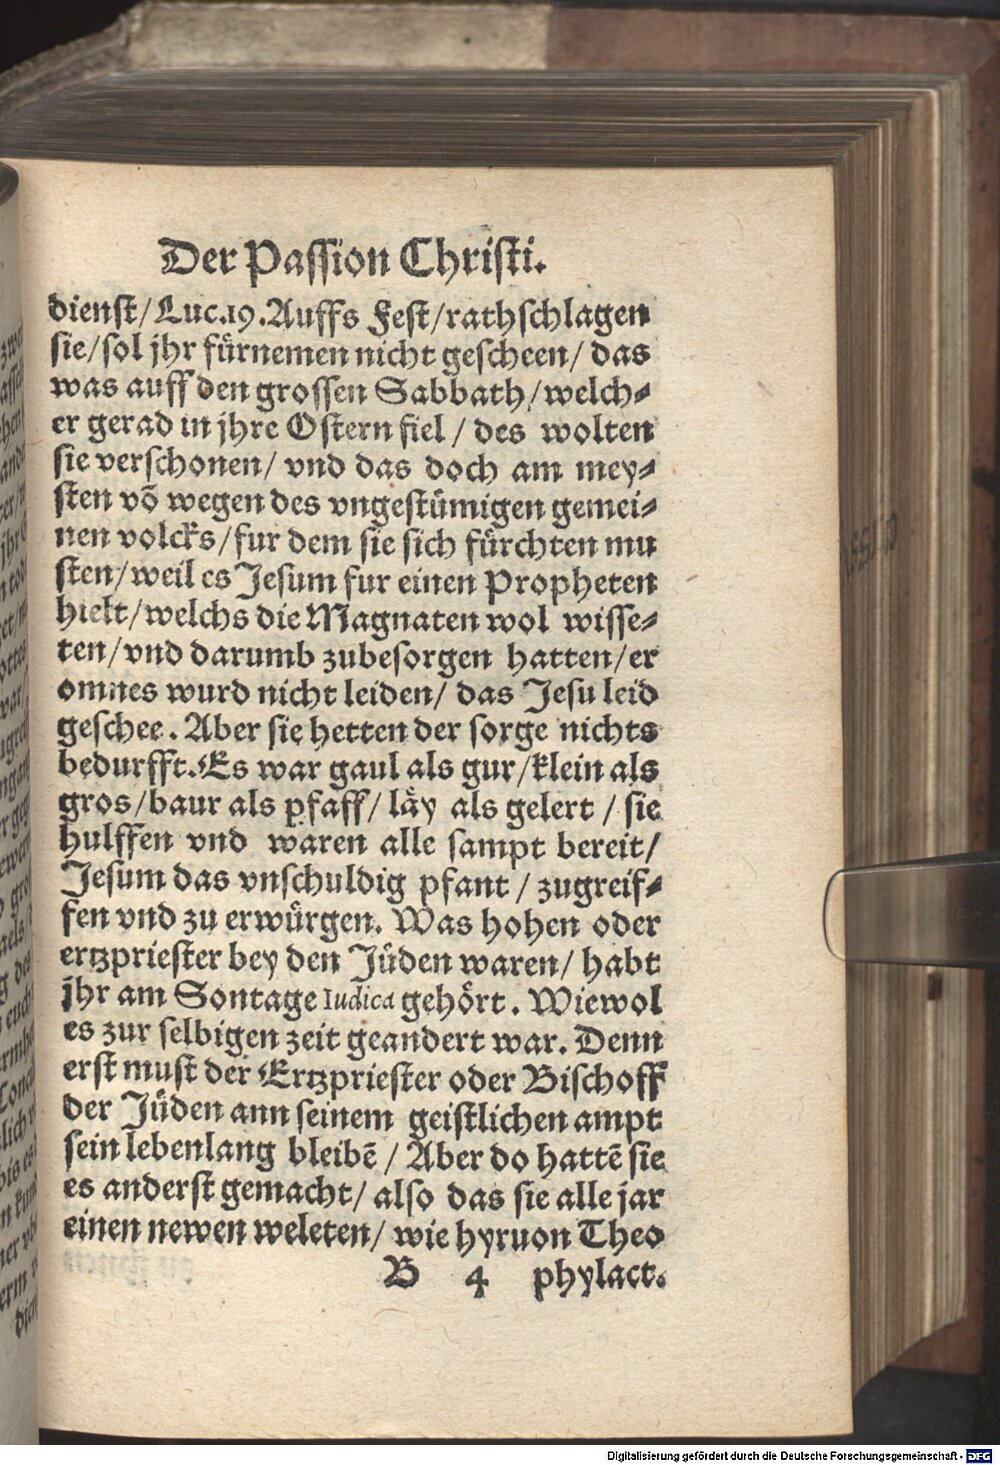 Der Passion Christi.
dienst/Luc.19.Auffs Fest/rathschlagen
sie/sol jhr fürnemen nicht gescheen/ das
was auff den grossen Sabbath/welch⸗
er gerad in jhre Ostern fiel / des wolten
sie verschonen/ vnd das doch am mey⸗
sten võ wegen des vngestümigen gemei⸗
nen volcks/fur dem sie sich fürchten mu
sten/weil es Jesum fur einen Propheten
hielt/welchs die Magnaten wol wisse⸗
ten/vnd darumb zubesorgen hatten/er
omnes wurd nicht leiden/ das Jesu leid
geschee. Aber sie hetten der sorge nichts
bedurfft.Es war gaul als gur/klein als
gros/baur als pfaff/ läy als gelert / sie
hulffen vnd waren alle sampt bereit/
Jesum das vnschuldig pfant / zugreif⸗
fen vnd zu erwürgen. Was hohen oder
ertzpriester bey den Jüden waren/ habt
jhr am Sontage Iudica gehört. Wiewol
es zur selbigen zeit geandert war. Denn
erst must der Ertzpriester oder Bischoff
der Jüden ann seinem geistlichen ampt
sein lebenlang bleibẽ / Aber do hattẽ sie
es anderst gemacht/ also das sie alle jar
einen newen weleten/ wie hyruon Theo
B 4 phylact.
Digitalisierung gefördert durch die Deutsche Forschungsgemeinschaft - DFG